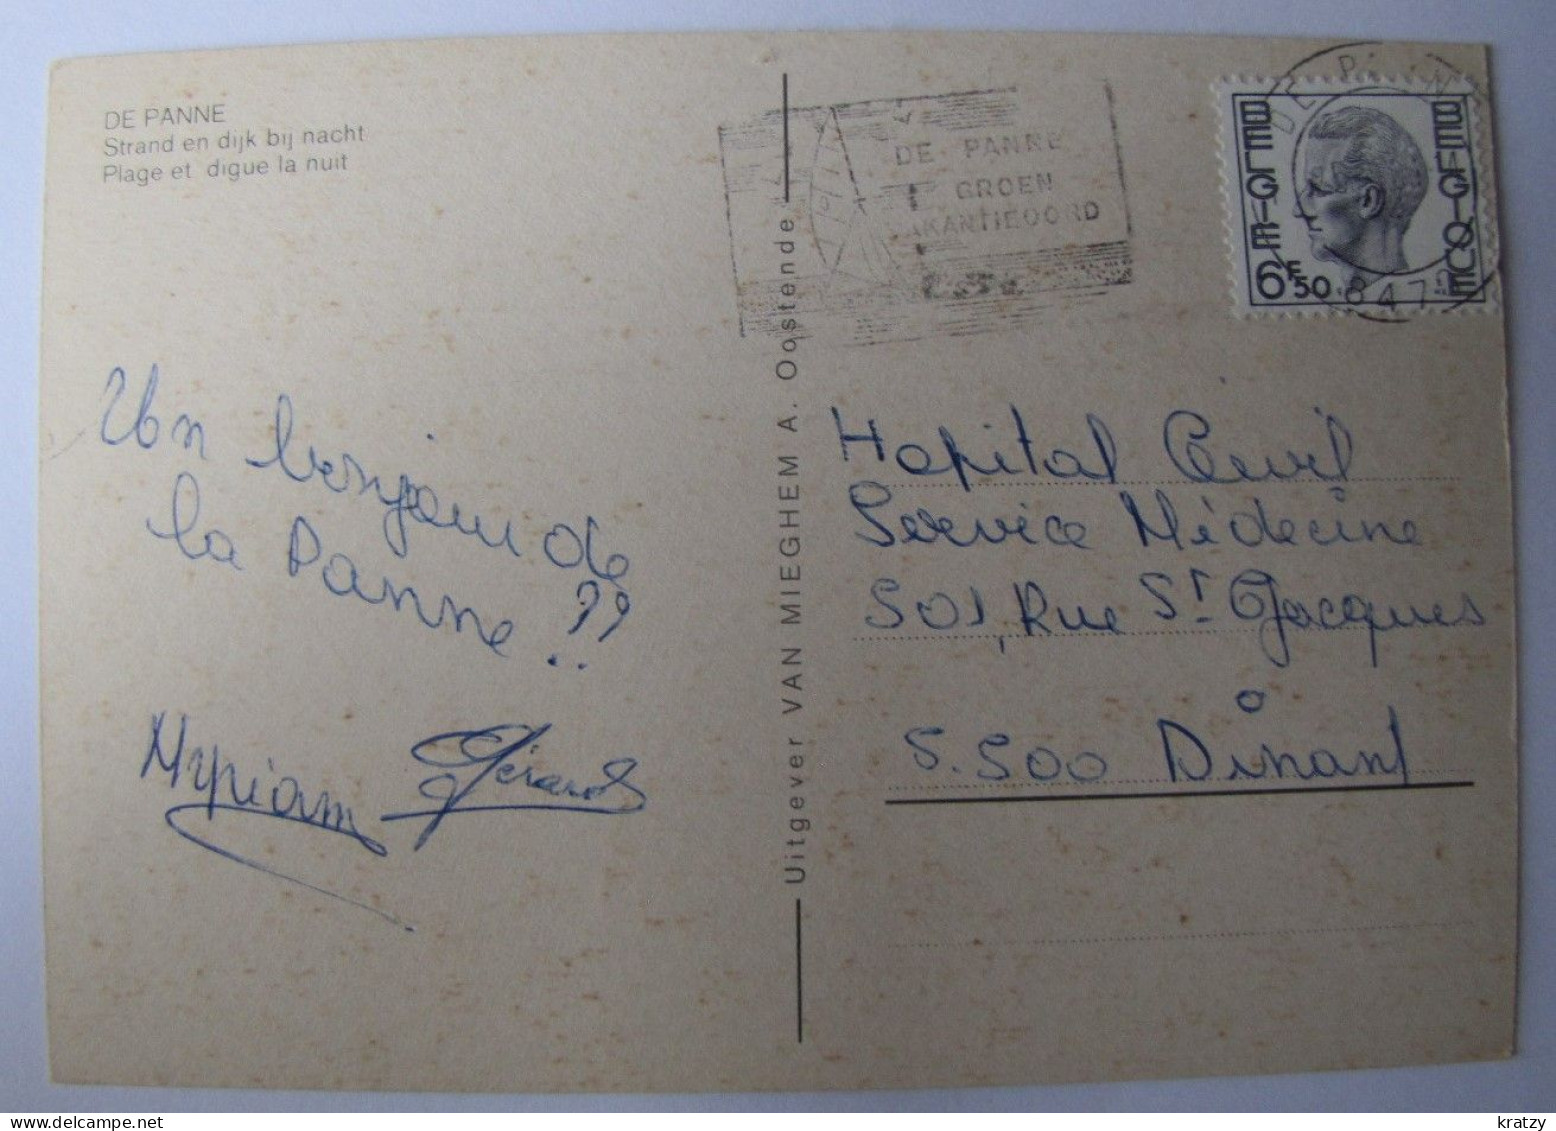 DE PANNE
Strand en dijk bij nacht
Plage et digue la nuit
Un bonjour de
la Panne !!
Myriam Gérard
Uitgever VAN MIEGHEM A. Oostende
DE PANNE
GROEN
VAKANTIEOORD
DE PANNE
8470
BELGIE
BELGIQUE
6F50
Hopital Civil
Service Médecine
501, Rue St Jacques
à
5.500 Dinant
kratzy